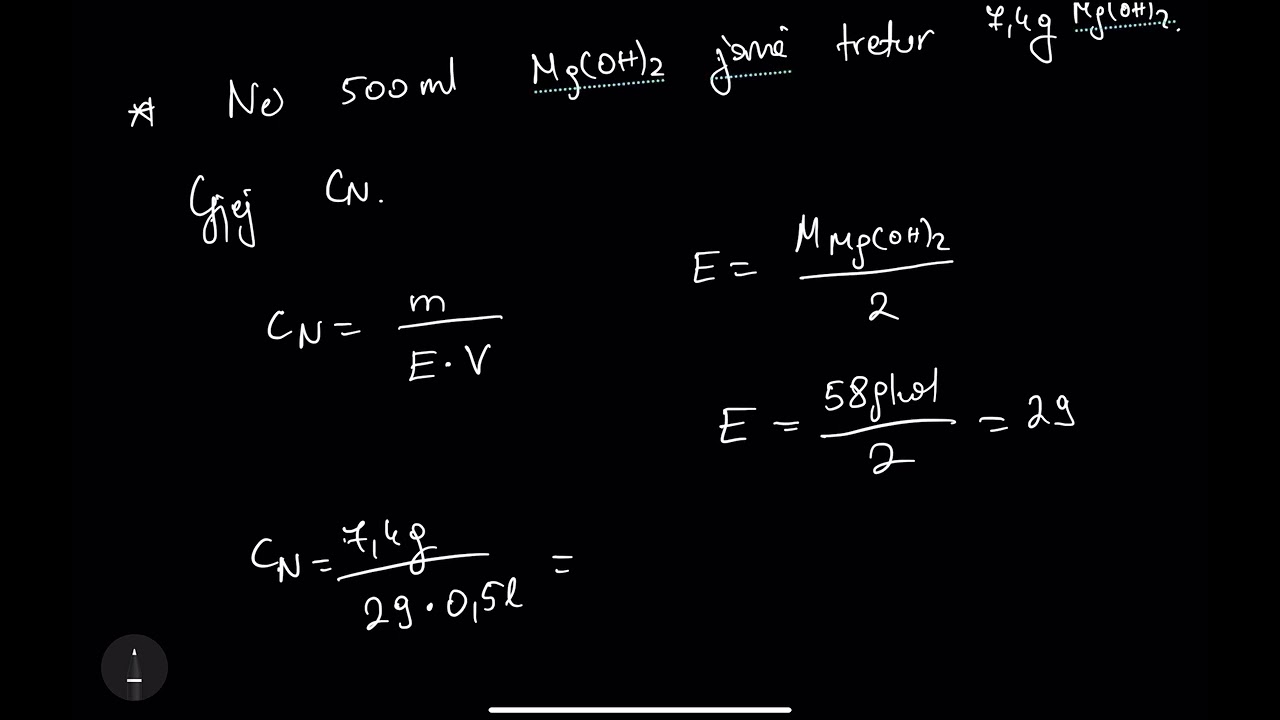 * Në 500 ml Mg(OH)2 janë tretur 7,4g Mg(OH)2.
Gjej CN.
E = M Mg(OH)2 / 2
CN = m / E · V
E = 58 g/mol / 2 = 29
CN = 7,4g / 29 · 0,5l =